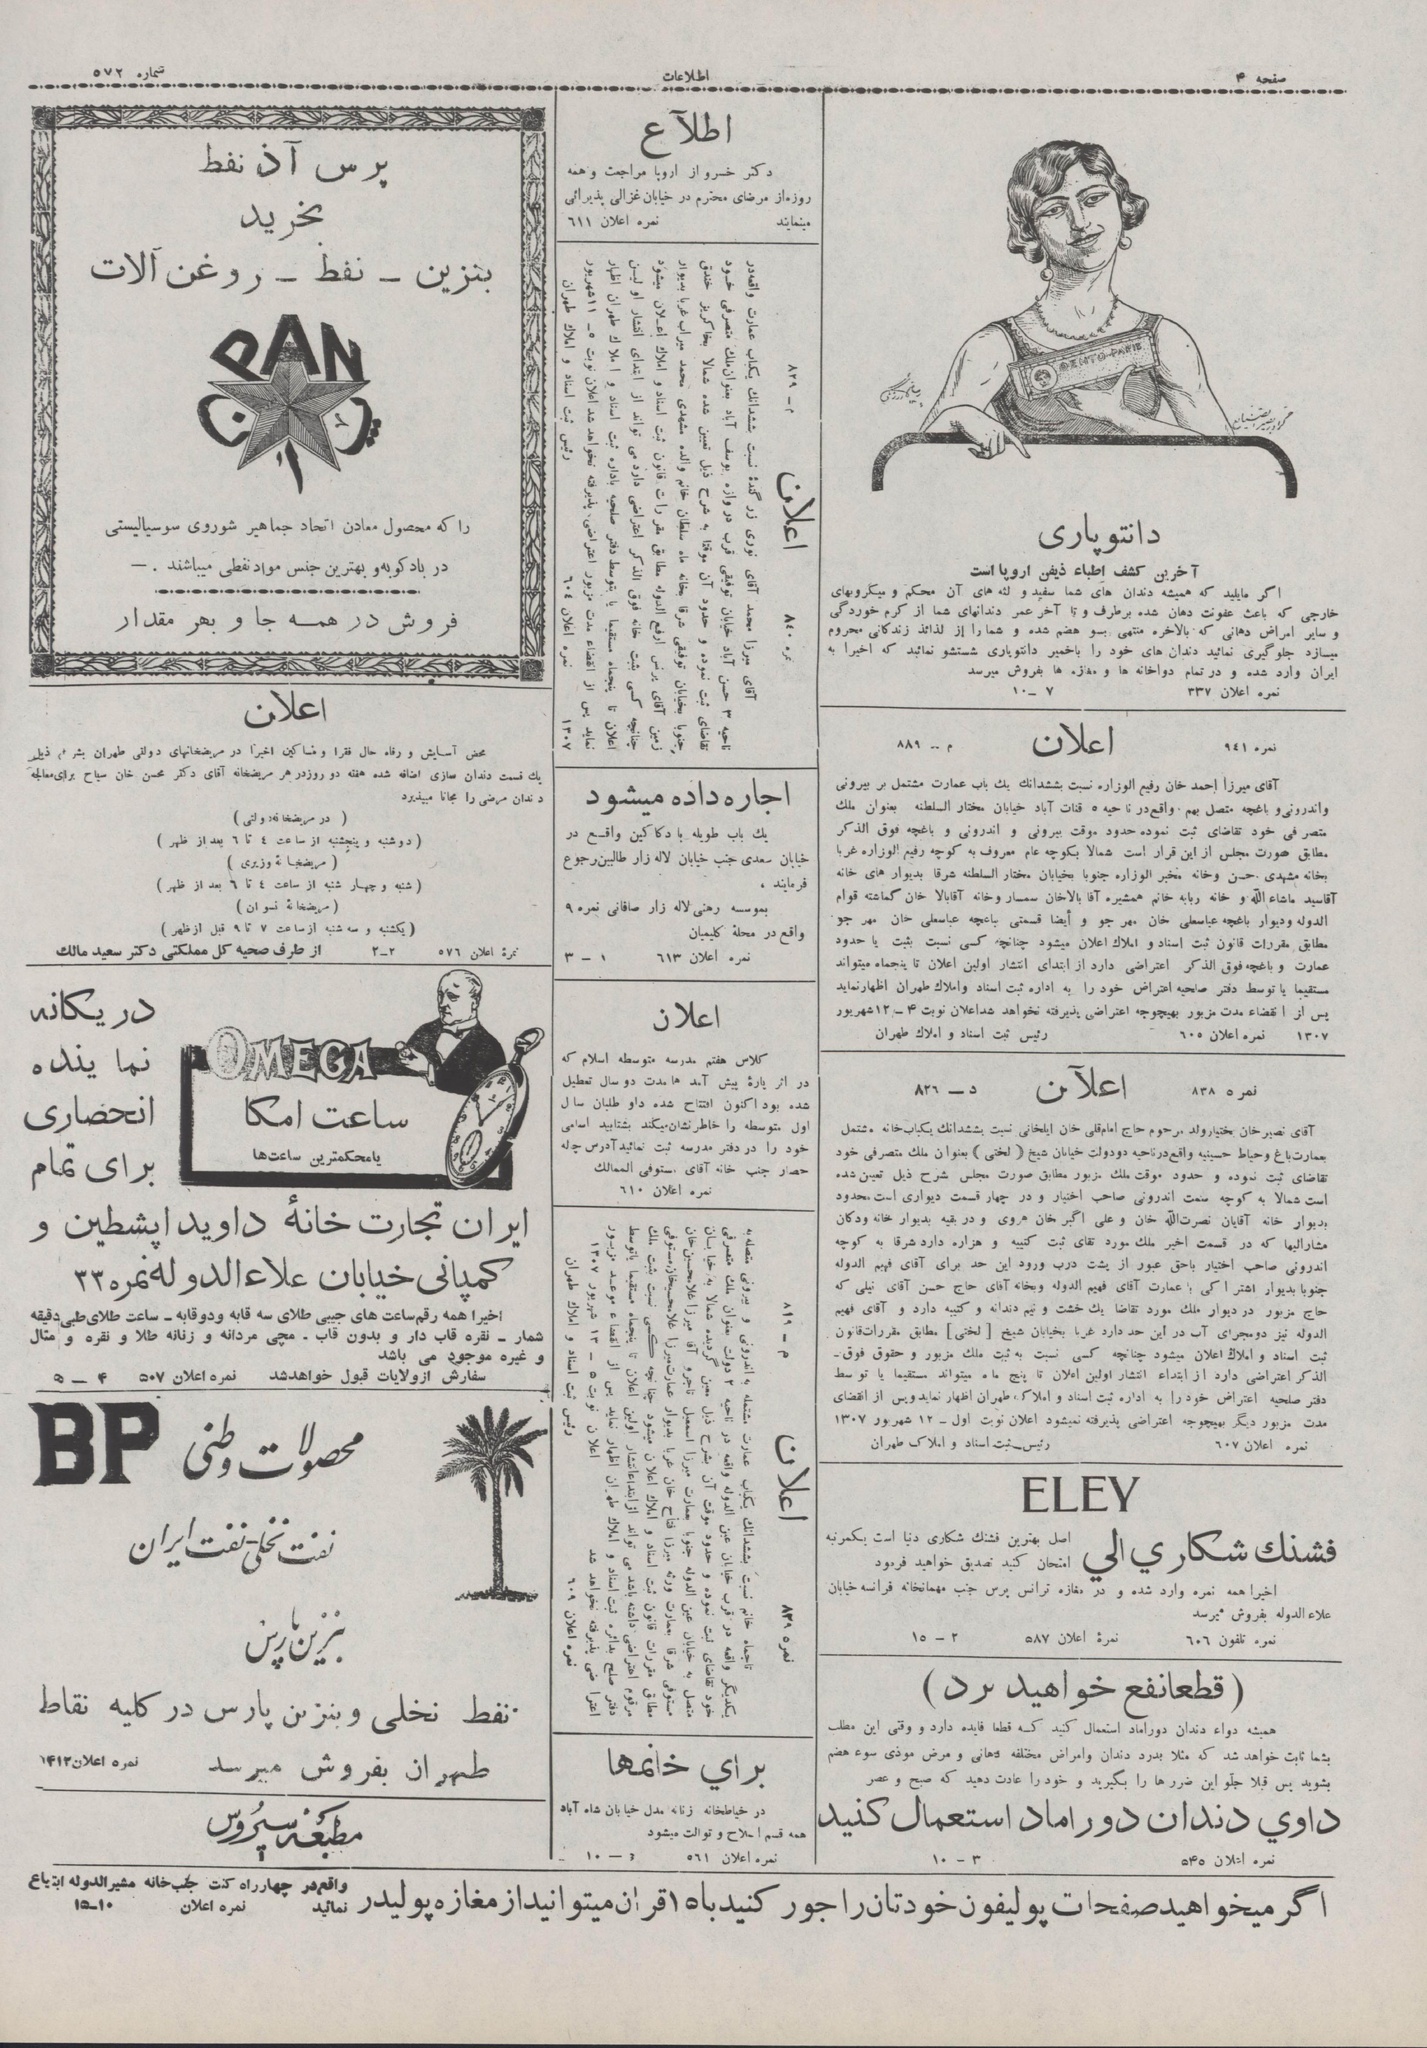 صفحه ۴
اطلاعات
شماره ۵۷۲
DENTO-PARIE
دانتوپاری
آخرین کشف اطباء ذیفن اروپا است
اگر مایلید که همیشه دندان های شما سفید و لثه های آن محکم و میکروبهای
خارجی که باعث عفونت دهان شده برطرف و تا آخر عمر دندانهای شما از کرم خوردگی
و سایر امراض دهانی که بالاخره منتهی بسو هضم شده و شما را از لذائذ زندگانی محروم
میسازد جلوگیری نمائید دندان های خود را باخمیر دانتوپاری شستشو نمائید که اخیرا به
ایران وارد شده و در تمام دواخانه ها و مغازه ها بفروش میرسد
نمره اعلان ۳۳۷ ۷ – ۱۰
نمره ۹۴۱ اعلان م – ۸۸۹
آقای میرزا احمد خان رفیع الوزاره نسبت بششدانك یك باب عمارت مشتمل بر بیرونی
واندرونی و باغچه متصل بهم واقع در ناحیه ۵ قنات آباد خیابان مختار السلطنه بعنوان ملك
متصرفی خود تقاضای ثبت نموده حدود موقت بیرونی و اندرونی و باغچه فوق الذکر
مطابق صورت مجلس از این قرار است شمالا بکوچه عام معروف به کوچه رفیع الوزاره غربا
بخانه مشهدی حسن وخانه مخبر الوزاره جنوبا بخیابان مختار السلطنه شرقا بدیوار های خانه
آقاسید ماشاءالله و خانه ربابه خانم همشیره آقا بالاخان سمسار وخانه آقابالا خان گماشته قوام
الدوله ودیوار باغچه عباسعلی خان مهر جو و أیضا قسمتی باغچه عباسعلی خان مهر جو
مطابق مقررات قانون ثبت اسناد و املاك اعلان میشود چنانچه کسی نسبت بثبت یا حدود
عمارت و باغچه فوق الذکر اعتراضی دارد از ابتدای انتشار اولین اعلان تا پنجماه میتواند
مستقیما یا توسط دفتر صلحیه اعتراض خود را به اداره ثبت اسناد واملاك طهران اظهار نماید
پس از انقضاء مدت مزبور بهیچوجه اعتراضی پذیرفته نخواهد شد اعلان نوبت ۴ – ۱۲ شهریور
۱۳۰۷ نمره اعلان ۶۰۵ رئیس ثبت اسناد و املاك طهران
نمره ۸۳۸ اعلان د – ۸۲۶
آقای نصیر خان بختیار ولد مرحوم حاج امامقلی خان ایلخانی نسبت بششدانك یکباب خانه مشتمل
بعمارت باغ وحیاط حسینیه واقع در ناحیه دو دولت خیابان شیخ ( لختی ) بعنوان ملك متصرفی خود
تقاضای ثبت نموده و حدود موقت ملك مزبور مطابق صورت مجلس شرح ذیل تعیین شده
است شمالا به کوچه سمت اندرونی صاحب اختیار و در چهار قسمت دیواری است محدود
بدیوار خانه آقایان نصرت الله خان و علی اکبر خان هروی و در بقیه بدیوار خانه ودکان
مشارالیها که در قسمت اخیر ملك مورد تقای ثبت کتیبه و هزاره دارد شرقا به کوچه
اندرونی صاحب اختیار باحق عبور از پشت درب ورود این حد برای آقای فهیم الدوله
جنوبا بدیوار اشتراکی با عمارت آقای فهیم الدوله وبخانه آقای حاج حسن آقای نیلی که
حاج مزبور در دیوار ملك مورد تقاضا یك خشت و نیم دندانه و کتیبه دارد و آقای فهیم
الدوله نیز دو مجرای آب در این حد دارد غربا بخیابان شیخ [ لختی ] مطابق مقررات قانون
ثبت اسناد و املاك اعلان میشود چنانچه کسی نسبت به ثبت ملك مزبور و حقوق فوق–
الذکر اعتراضی دارد از ابتداء انتشار اولین اعلان تا پنج ماه میتواند مستقیما یا توسط
دفتر صلحیه اعتراض خود را به اداره ثبت اسناد و املاك طهران اظهار نماید وپس از انقضای
مدت مزبور دیگر بهیچوجه اعتراضی پذیرفته نمیشود اعلان نوبت اول – ۱۲ شهریور ۱۳۰۷
نمره اعلان ۶۰۷ رئیس ثبت اسناد و املاک طهران
ELEY
فشنك شكاري الي
اصل بهترین فشنك شکاری دنیا است یکمرتبه
امتحان کنید تصدیق خواهید فرمود
اخیرا همه نمره وارد شده و در مغازه ترانس پرس جنب مهمانخانه فرانسه خیابان
علاء الدوله بفروش میرسد
نمره تلفون ۶۰۶ نمرهٔ اعلان ۵۸۷ ۲ – ۱۵
( قطعا نفع خواهید برد )
همیشه دواء دندان دوراماد استعمال کنید که قطعا فایده دارد و وقتی این مطلب
بشما ثابت خواهد شد که مثلا بدرد دندان وامراض مختلفه دهانی و مرض موذی سوء هضم
بشوید پس قبلا جلو این ضرر ها را بگیرید و خود را عادت دهید که صبح و عصر
داوي دندان دوراماد استعمال کنید
نمره اعلان ۵۴۵ ۳ – ۱۰
اطلاع
دکتر خسرو از اروپا مراجعت و همه
روزه از مرضای محترم در خیابان غزالی پذیرائی
مینمایند نمره اعلان ۶۱۱
م – ۸۲۹ اعلان نمره ۸۴۰
آقای میرزا محمد آقای نوری زرگنده نسبت ششدانك یکباب عمارت واقعه در
ناحیه ۳ حسن آباد خیابان توفیقی قرب دروازه یوسف آباد بعنوان ملك متصرفی خود
تقاضای ثبت نموده و حدود آن موقتا به شرح ذیل تعیین شده شمالا بخاکریز خندق
جنوبا بخیابان توفیقی شرقا بخانه ماه سلطان خانم والده مشهدی محمد میراب غربا بدیوار
زمین آقای پرنس ارفع الدوله مطابق مقررات قانون ثبت اسناد و املاك اعلان میشود
چنانچه کسی ثبت خانه فوق الذکر اعتراضی دارد می تواند از ابتدای انتشار اولین
اعلان تا پنجماه مستقیما یا توسط دفتر صلحیه باداره ثبت اسناد و املاك طهران اظهار
نماید پس از انقضاء مدت مزبور اعتراضی پذیرفته نخواهد شد اعلان نوبت ۵ – ۱۱ شهریور
۱۳۰۷ نمره اعلان ۶۰۴ رئیس ثبت اسناد و املاك طهران
اجاره داده میشود
یك باب طویله با دکاکین واقع در
خیابان سعدی جنب خیابان لاله زار طالبین رجوع
فرمایند ،
بموسسه رهنی لاله زار صافانی نمره ۹
واقع در محلهٔ کلیمیان
نمره اعلان ۶۱۳ ۱ – ۳
اعلان
کلاس هفتم مدرسه متوسطه اسلام که
در ازپارهٔ پیش آمد ها مدت دو سال تعطیل
شده بود اکنون افتتاح شده داوطلبان سال
اول متوسطه را خاطرنشان میکند بشتابید اسامی
خود را در دفتر مدرسه ثبت نمائید آدرس چاله
حصار جنب خانه آقای مستوفی الممالك
نمره اعلان ۶۱۰
م – ۸۱۹ اعلان نمره ۸۳۹
تاجماه خانم نسبت بششدانك یکباب عمارت مشتمله باندرونی و بیرونی متصله به
یکدیگر واقعه در قرب خیابان عین الدوله واقعه در ناحیه ۲ دولت بعنوان ملك متصرفی
خود تقاضای ثبت نموده و حدود موقت آن بشرح ذیل معین گردیده شمالا به خیابان
متصل به خیابان عین الدوله جنوبا بعمارت میرزا اسمعیل تاجر و آقا میرزا غلامحسین خان
مستوفی شرقا بعمارت ورثه میرزا فتاح خان غربا بدیوار عمارت میرزا غلامحسینخان مستوفی
مطابق مقررات قانون ثبت اسناد و املاك اعلان میشود چنانچه کسی نسبت بثبت ملك
مرقوم اعتراضی داشته باشد می تواند از ابتداء انتشار اولین اعلان تا پنجماه مستقیما یا توسط
دفتر صلح بدائره ثبت اسناد و املاك طهران اظهار نماید پس از انقضاء موعد مزبور
اعتراضی پذیرفته نخواهد شد اعلان نوبت ۵ – ۱۳ شهریور ۱۳۰۷
نمره اعلان ۶۰۹ رئیس ثبت اسناد و املاك طهران
براي خانمها
در خیاطخانه زنانه مدل خیابان شاه آباد
همه قسم اصلاح و توالت میشود
نمره اعلان ۵۶۱ – ۱۰
پرس آذ نفط
بخرید
بنزین – نفط – روغن آلات
PAN
را که محصول معادن اتحاد جماهیر شوروی سوسیالیستی
در بادکوبه و بهترین جنس مواد نفطی میباشند . —
فروش در همه جا و بهر مقدار
اعلان
محض آسایش و رفاه حال فقرا و مساکین اخیرا در مریضخانهای دولتی طهران بشرح ذیل
یك قسمت دندان سازی اضافه شده هفته دو روز در هر مریضخانه آقای دکتر محسن خان سیاح برای معالجه
دندان مرضی را مجانا میپذیرد
( در مریضخانه دولتی )
( دوشنبه و پنجشنبه از ساعت ٤ تا ٦ بعد از ظهر )
( مریضخانهٔ وزیری )
( شنبه و چهار شنبه از ساعت ٤ تا ٦ بعد از ظهر )
( مریضخانهٔ نسوان )
( یکشنبه و سه شنبه از ساعت ۷ تا ۹ قبل از ظهر )
نمرهٔ اعلان ۵۷۶ ۲–۲ از طرف صحیه کل مملکتی دکتر سعید مالك
OMEGA
ساعت امگا
یا محکمترین ساعت‌ها
در یگانه
نماینده
انحصاری
برای تمام
ایران تجارت خانهٔ داوید اپشطین و
کمپانی خیابان علاء الدوله نمره ۳۳
اخیرا همه رقم ساعت های جیبی طلای سه قابه ودوقابه – ساعت طلای طبی دقیقه
شمار – نقره قاب دار و بدون قاب – مچی مردانه و زنانه طلا و نقره و متال
و غیره موجود می باشد
سفارش از ولایات قبول خواهد شد نمره اعلان ۵۰۷ ۴ – ۵
BP
محصولات وطنی
نفت نخلی – نفت ایران
بنزین پارس
نفط نخلی و بنزین پارس در کلیه نقاط
طهران بفروش میرسد نمره اعلان ۱۴۱۳
مطبعه سیروس
اگر میخواهید صفحات پولیفون خودتان را جور کنید با ۱۵ قران میتوانید از مغازه پولیدر
واقع در چهار راه کنت جنب خانه مشیر الدوله ابتیاع
نمائید نمره اعلان ۱۰–۱۵